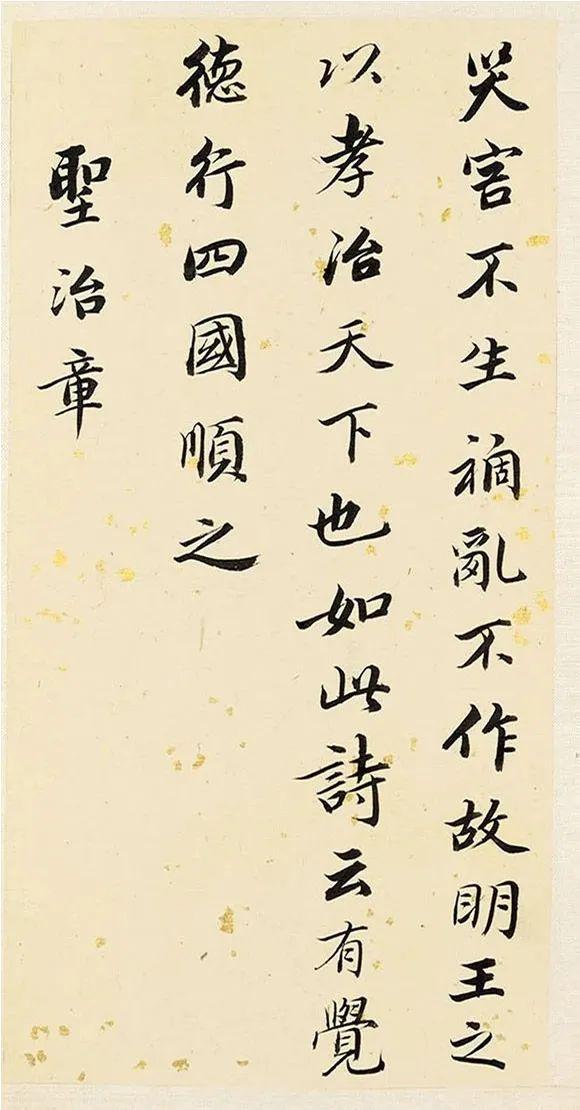 災害不生禍亂不作故明王之
以孝治天下也如此詩云有覺
徳行四國順之
聖治章